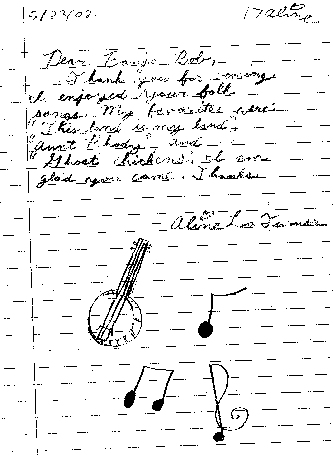 5/23/02
Dear Banjo Bob,
Thank you for coming
I enjoyed your folk
songs. My favorites were
"This land is my land",
"aunt Rhody", and
"Ghost chickens". I am
glad you came. Thanks